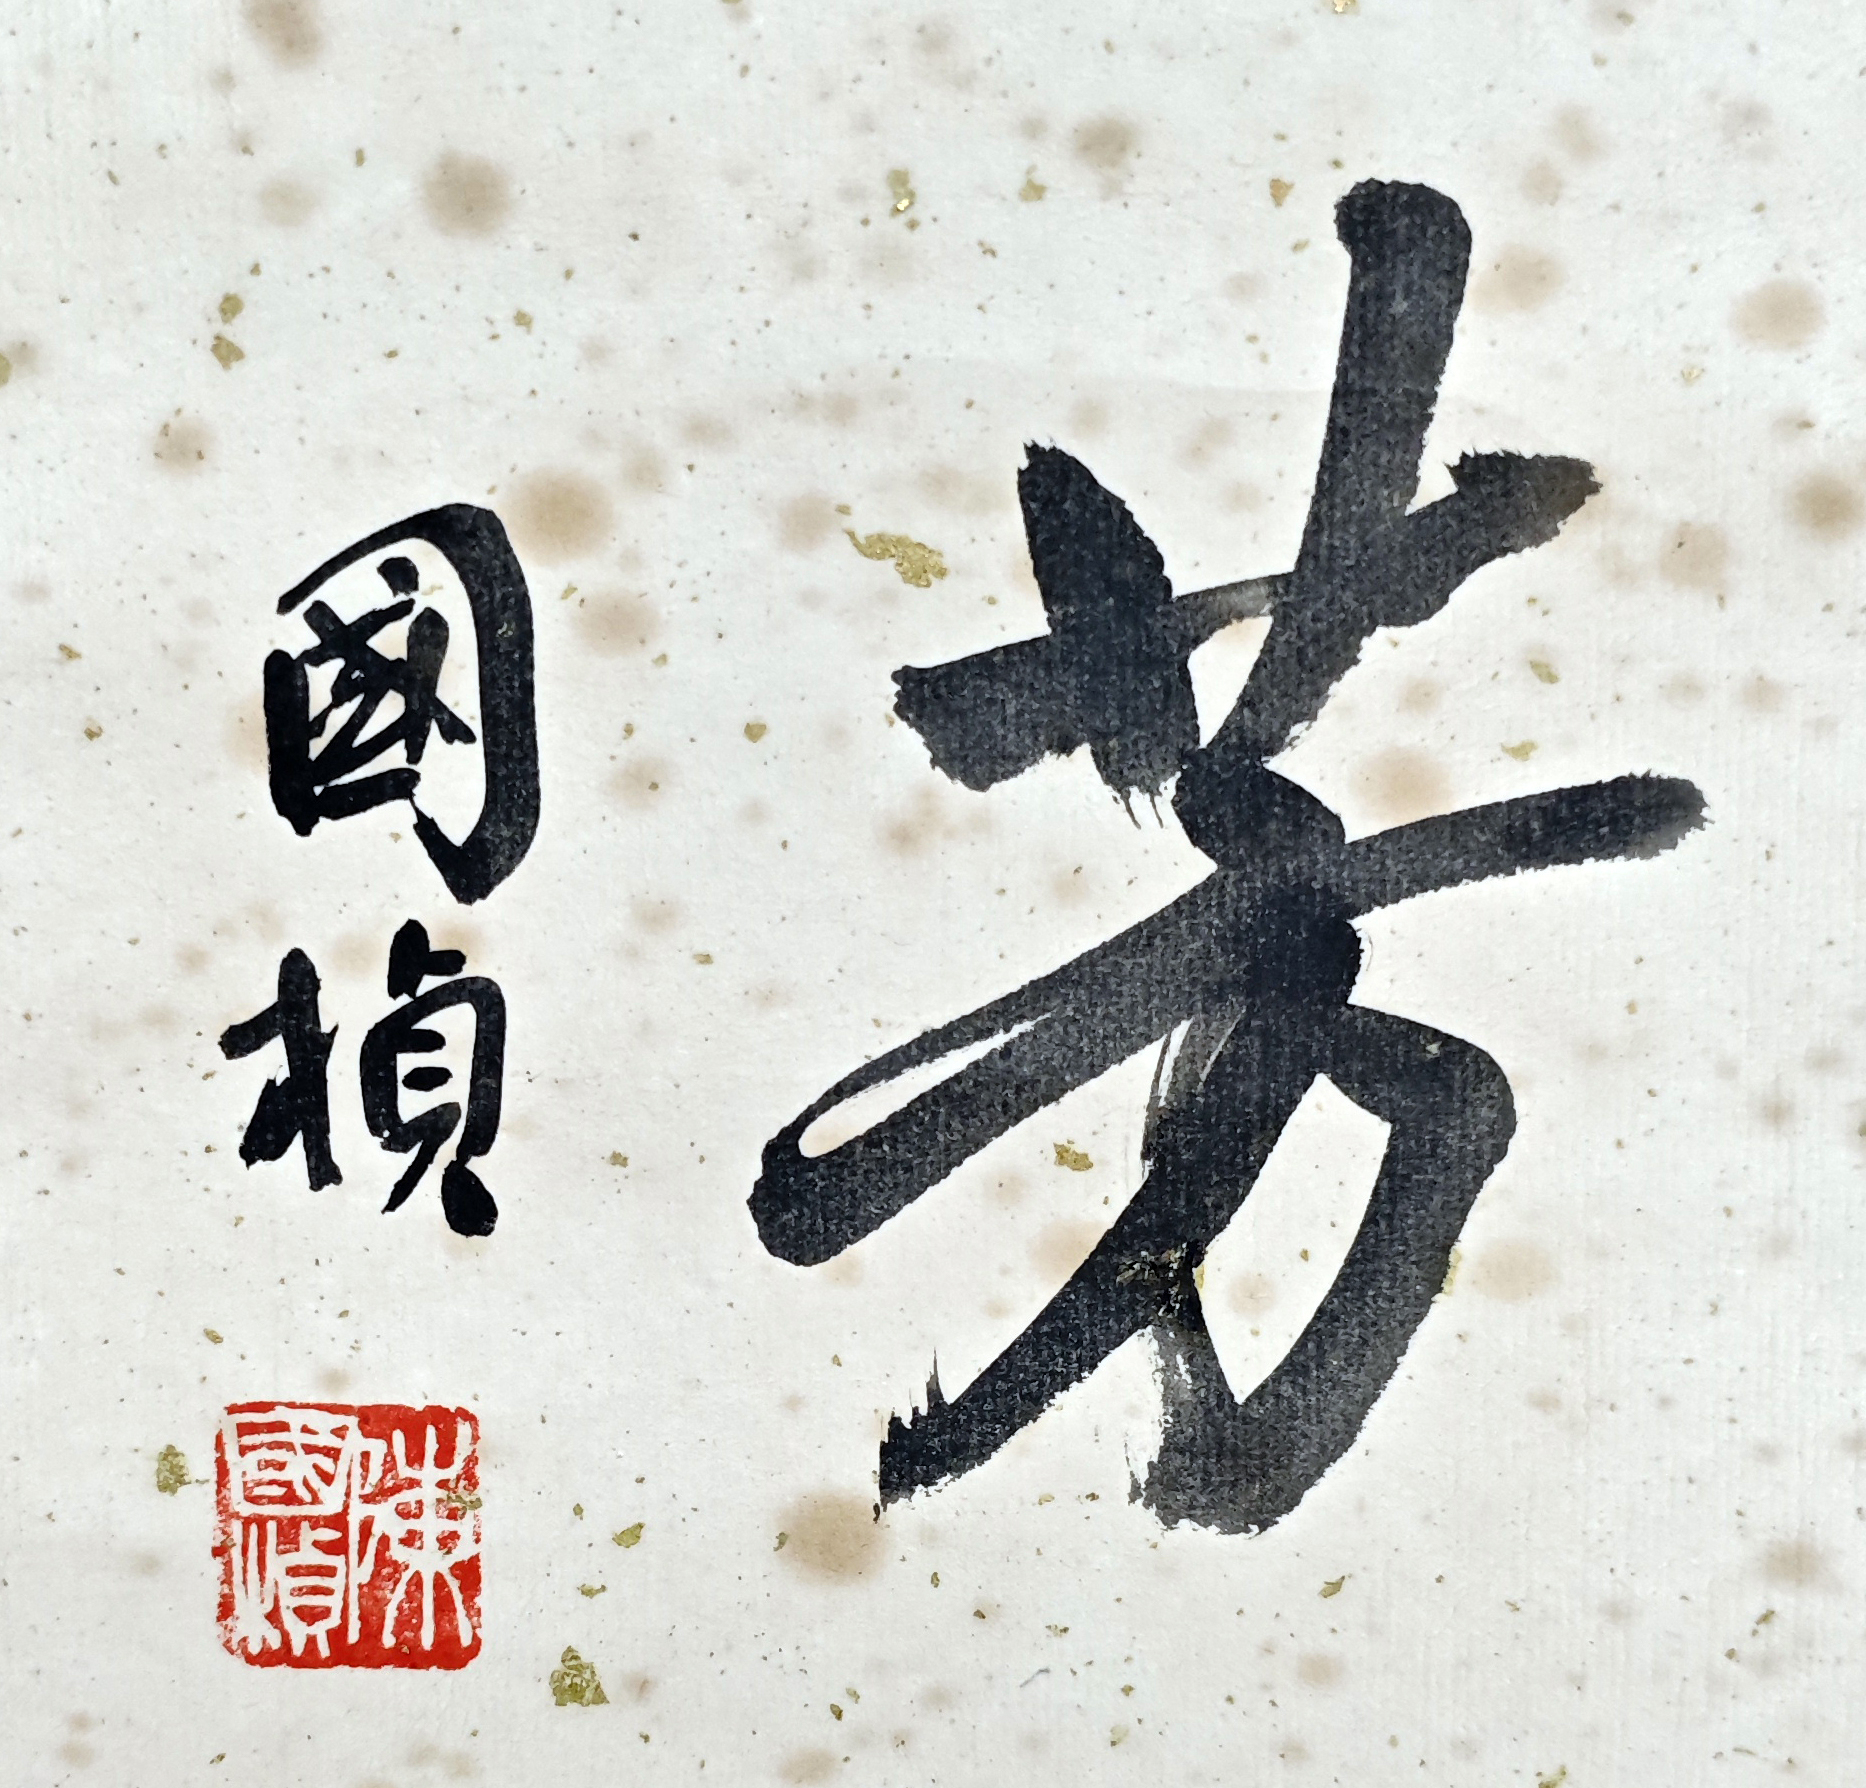 芳
國楨
陳國楨